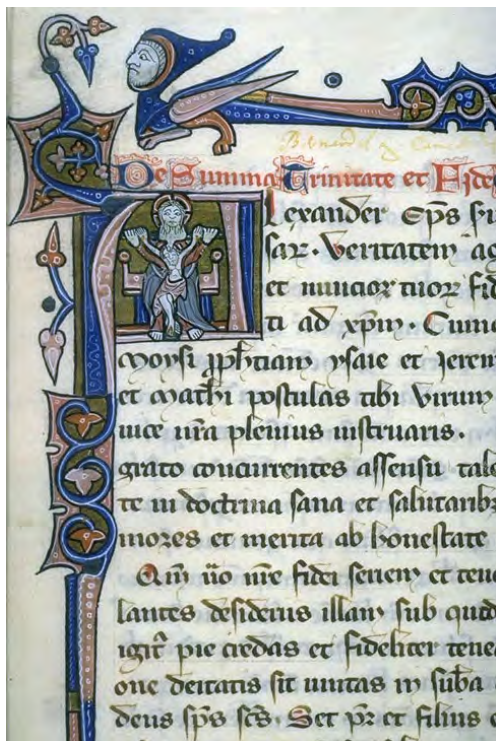 De Summa Trinitate et Fide
Alexander Eps
sar. Veritatem
et nuncior tuor fid
ti ad xpm. Cum
moysi ysaie et Jerem
et mathi postulas tibi virum
nra plenius instruaris.
grato concurrentes assensu
te in doctrina sana et salutarib
mores et merita ab honestate
Qm uo nre fidei seriem et
lantes desideriis illam sub
pie credas et fideliter
one deitatis sit unitas in suba
deus sps scs. Set pr et filius